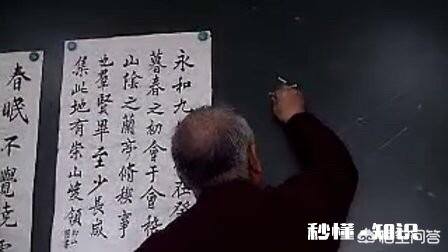 永和九在癸
暮春之初會于會稽
山陰之蘭亭脩稧事
也羣賢畢至少長咸
集此地有崇山峻領
春眠不覺曉
秒懂 知识
悟空问答